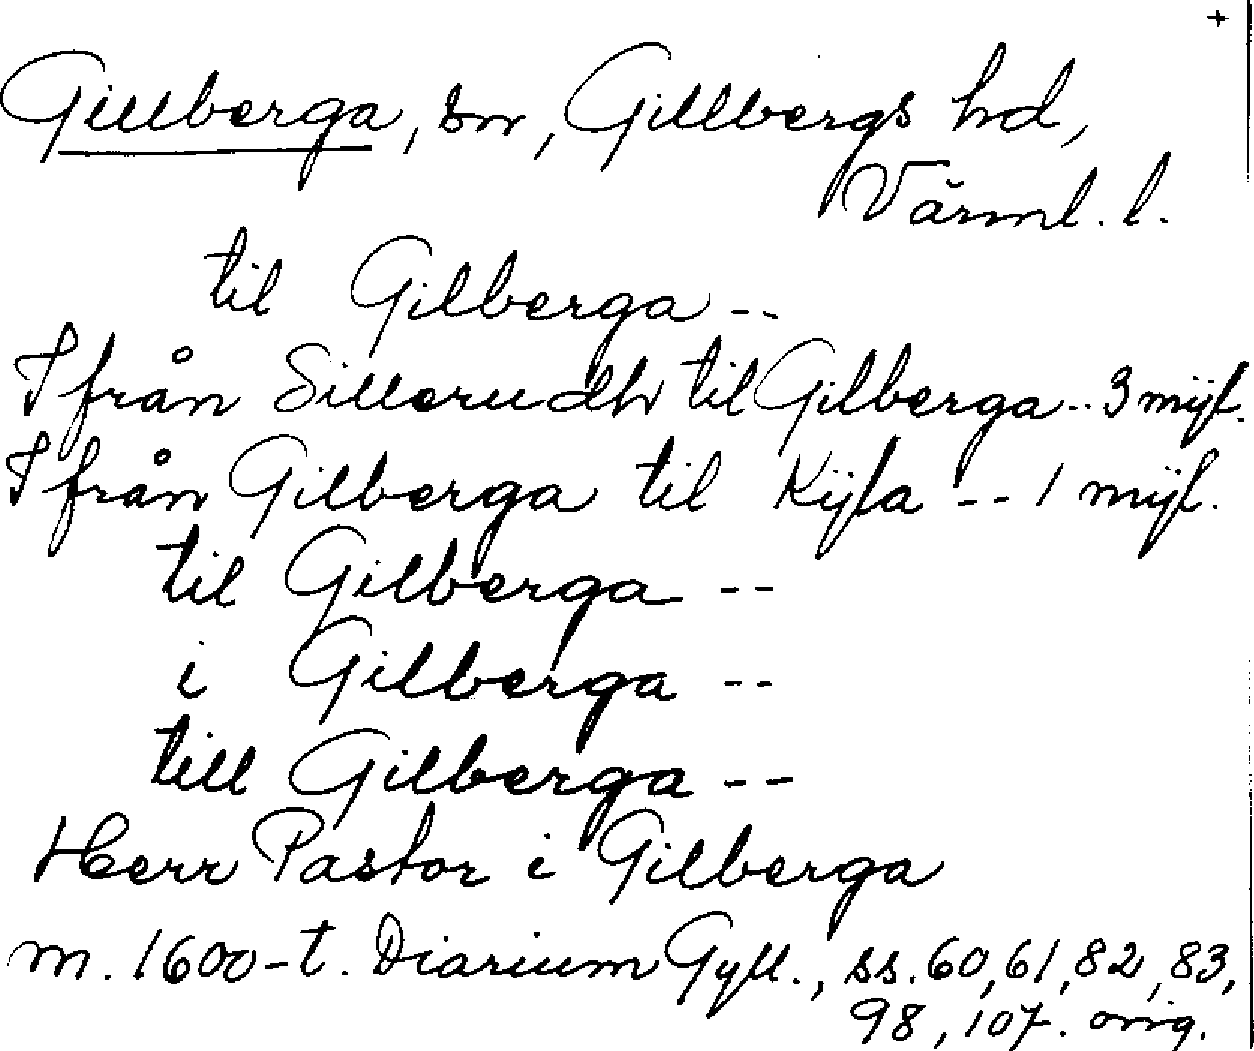 +
Gillberga, sn, Gillbergs hd,
Värml. l.
til Gilberga --
Ifrån Sillerudh til Gilberga -- 3 mijl.
Ifrån Gilberga til Kijla -- 1 mijl.
til Gilberga --
i Gilberga --
till Gilberga --
Herr Pastor i Gilberga
m. 1600-t. Diarium Gyll., ss. 60, 61, 82, 83,
98, 107. orig.